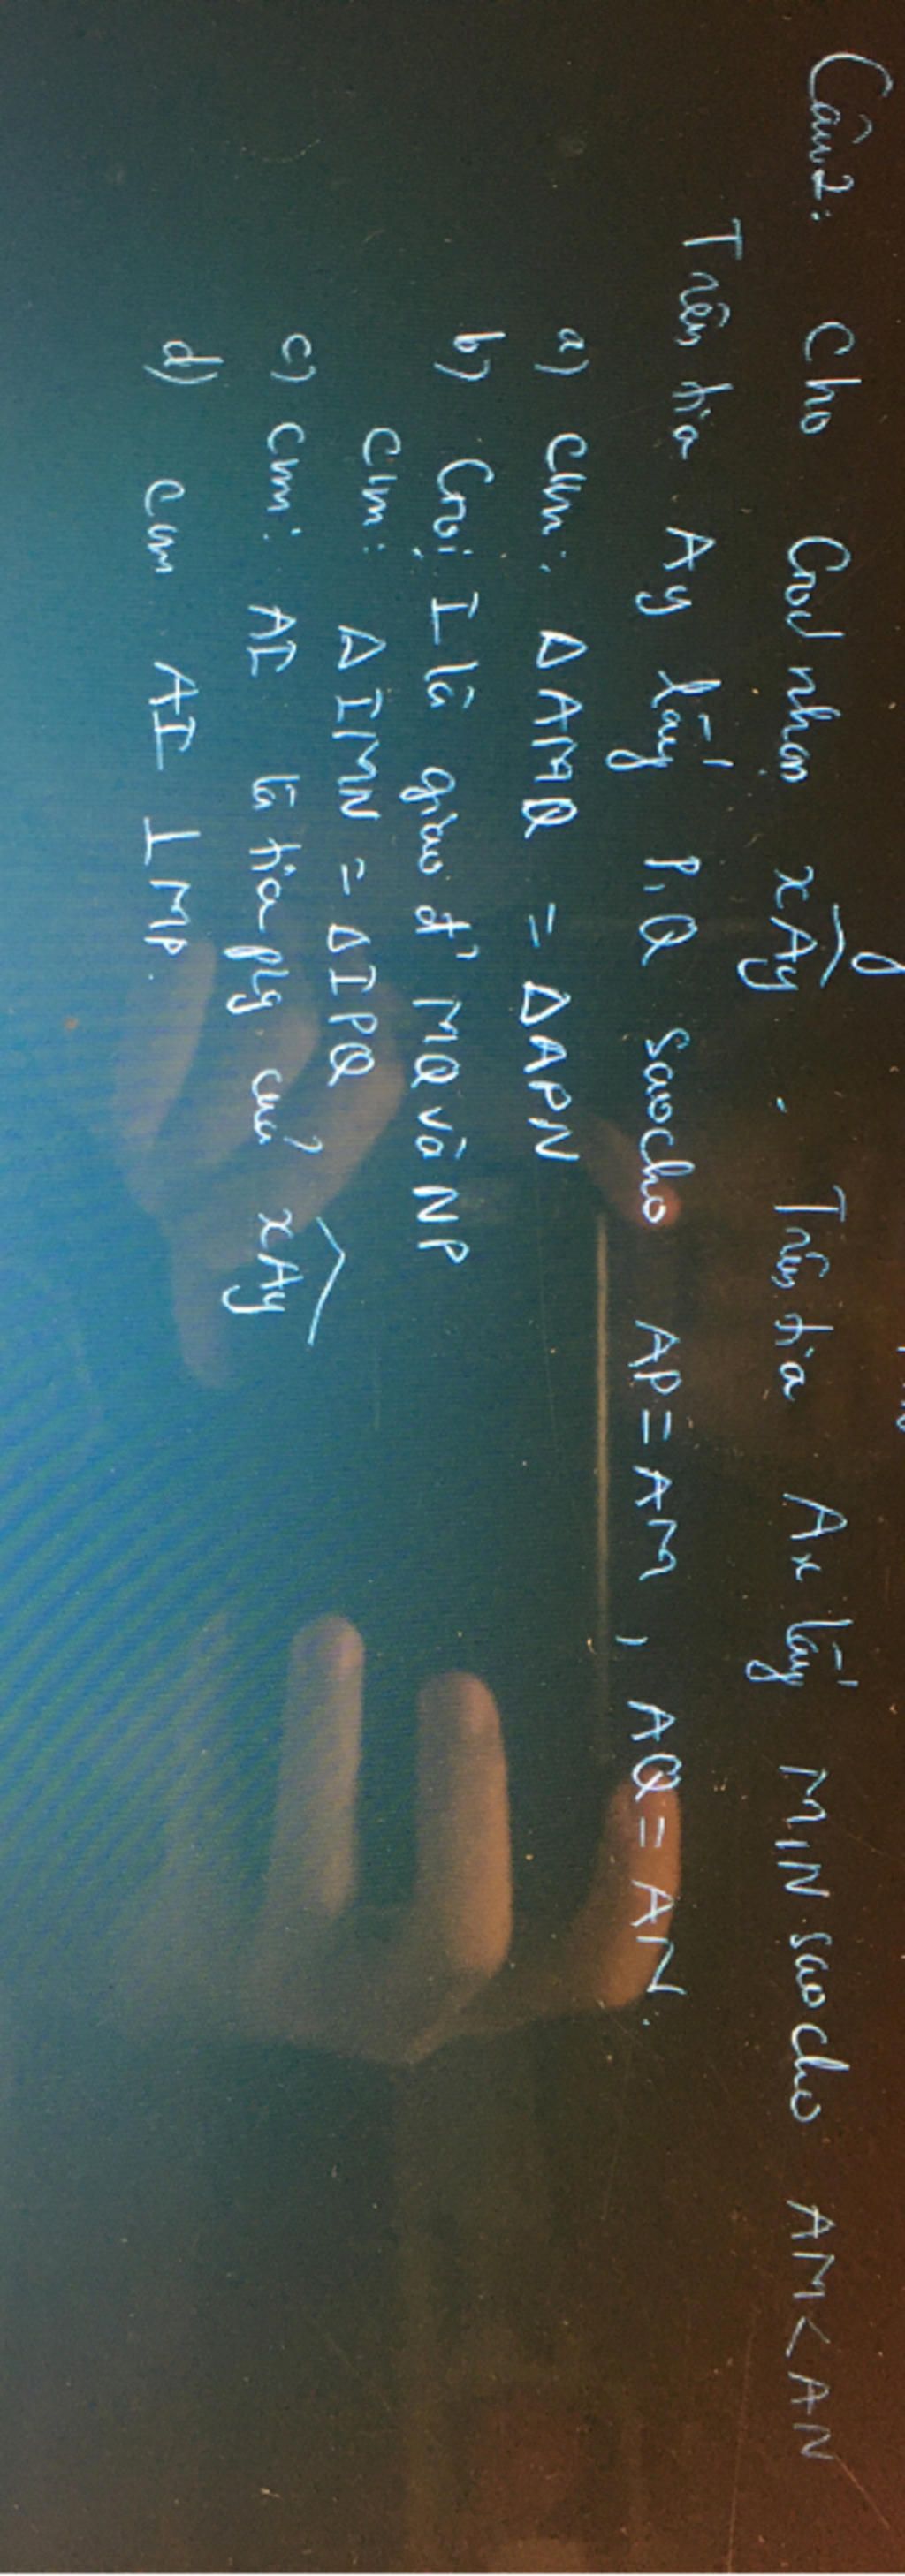 Câu 2: Cho Góc nhọn xAy. Trên tia Ax lấy M, N sao cho AM < AN
Trên tia Ay lấy P, Q sao cho AP = AM, AQ = AN.
a) cm: Δ AMQ = Δ APN
b) Gọi I là giao đ' MQ và NP
cm: Δ IMN = Δ IPQ
c) cm: AI là tia p/g của xAy
d) cm AI ⊥ MP.